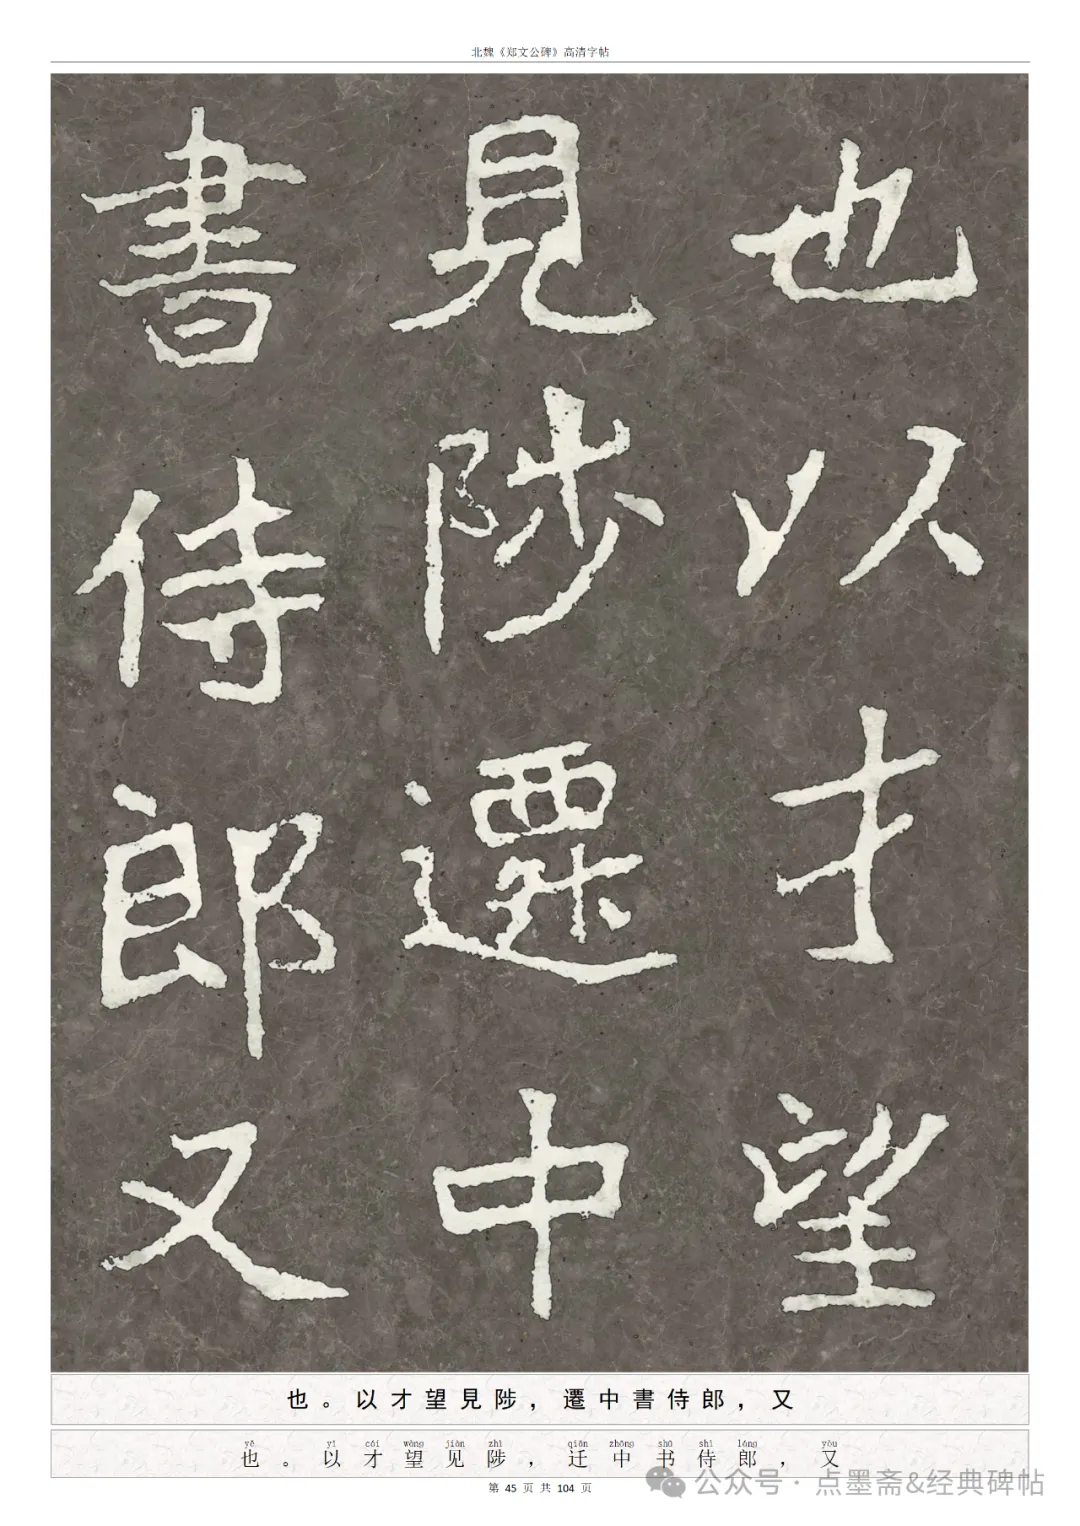 北魏《郑文公碑》高清字帖
也以才望
見陟遷中
書侍郎又
也。以才望見陟，遷中書侍郎，又
yě yǐ cái wàng jiàn zhì qiān zhōng shū shì láng yòu
也。以才望见陟，迁中书侍郎，又
第 45 页 共 104 页
公众号 · 点墨斋&经典碑帖